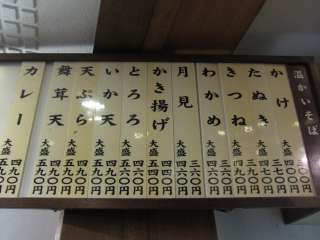 温かいそば
かけ 三〇〇円
大盛 四〇〇円
たぬき 三七〇円
大盛
きつね
大盛
わかめ 三六〇円
大盛 四六〇円
月見 三六〇円
大盛 四六〇円
かき揚げ
大盛 五六〇円
とろろ 四六〇円
大盛 五六〇円
いか天 四九〇円
大盛 五九〇円
天ぷら 四九〇円
大盛 五九〇円
舞茸天 四九〇円
大盛 五九〇円
カレー 四九〇円
大盛 五九〇円